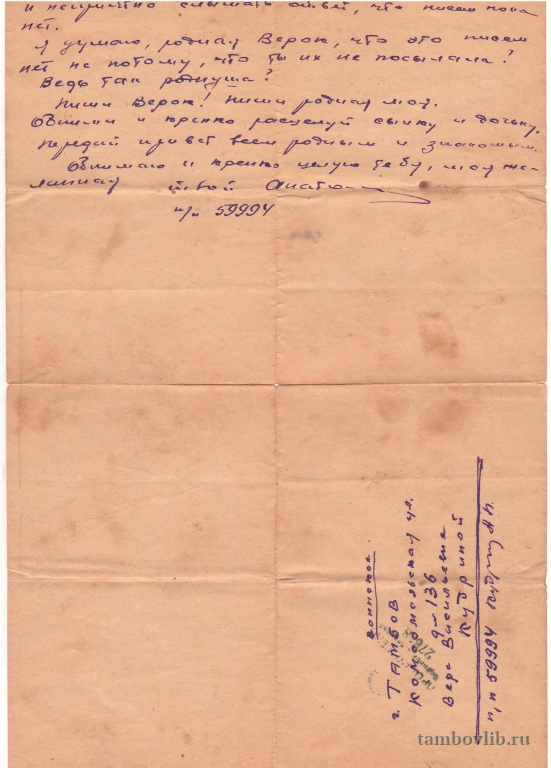 и неприятно слышать ответ, что писем пока
нет.
Я думаю, родная Верок, что это писем
нет не потому, что ты их не посылала?
Ведь так родн уша?
Пиши Верок! Пиши родная моя.
Обними и крепко расцелуй сынку и дочьку.
Передай привет всем родным и знакомым.
Обнимаю и крепко целую тебя, моя же-
ланная твой Анато
п/п 59994
воинское.
г. Тамбов
Комсомольская ул.
д-136
Вере Васильевне
Кудриной
п/п 59994
tambovlib.ru